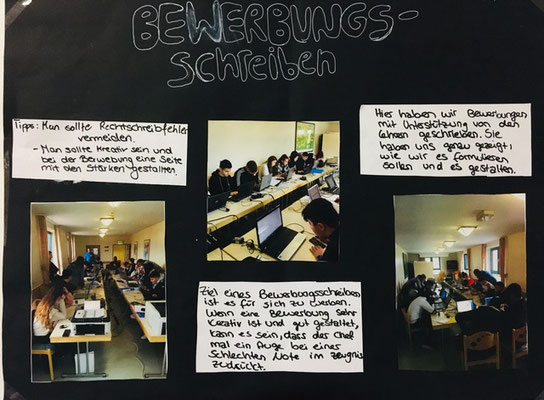 BEWERBUNGS-
schreiben
Tipps: Man sollte Rechtschreibfehler
vermeiden.
- Man sollte Kreativ sein und
bei der Berwebung eine Seite
mit den Stärken gestalten.
Hier haben wir Bewerbungen
mit Unterstützung von den
Lehrern geschrieben. Sie
haben uns genau gezeigt,
wie wir es formulieren
sollen und es gestalten.
Ziel eines Bewerbungsschreiben
ist es für sich zu werben.
Wenn eine Bewerbung sehr
Kreativ ist und gut gestaltet,
kann es sein, dass der Chef
mal ein Auge bei einer
schlechten Note im Zeugnis
zudrückt.